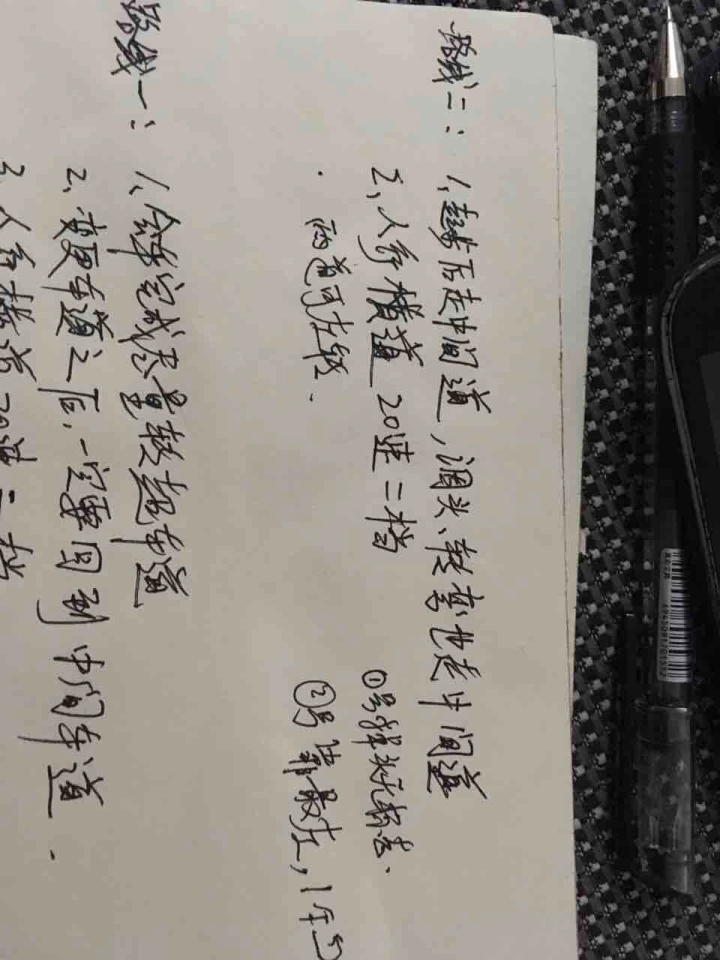 路线二：1、起步后走中间道，调头、转弯也走中间道
2、人行横道20速二档
①号
· 两道可左转.
②号靠最左，1
路线一：1、会车完成尽量超车道
2、变更车道之后，一定要回到中间车道.
3、人行横道20速二档